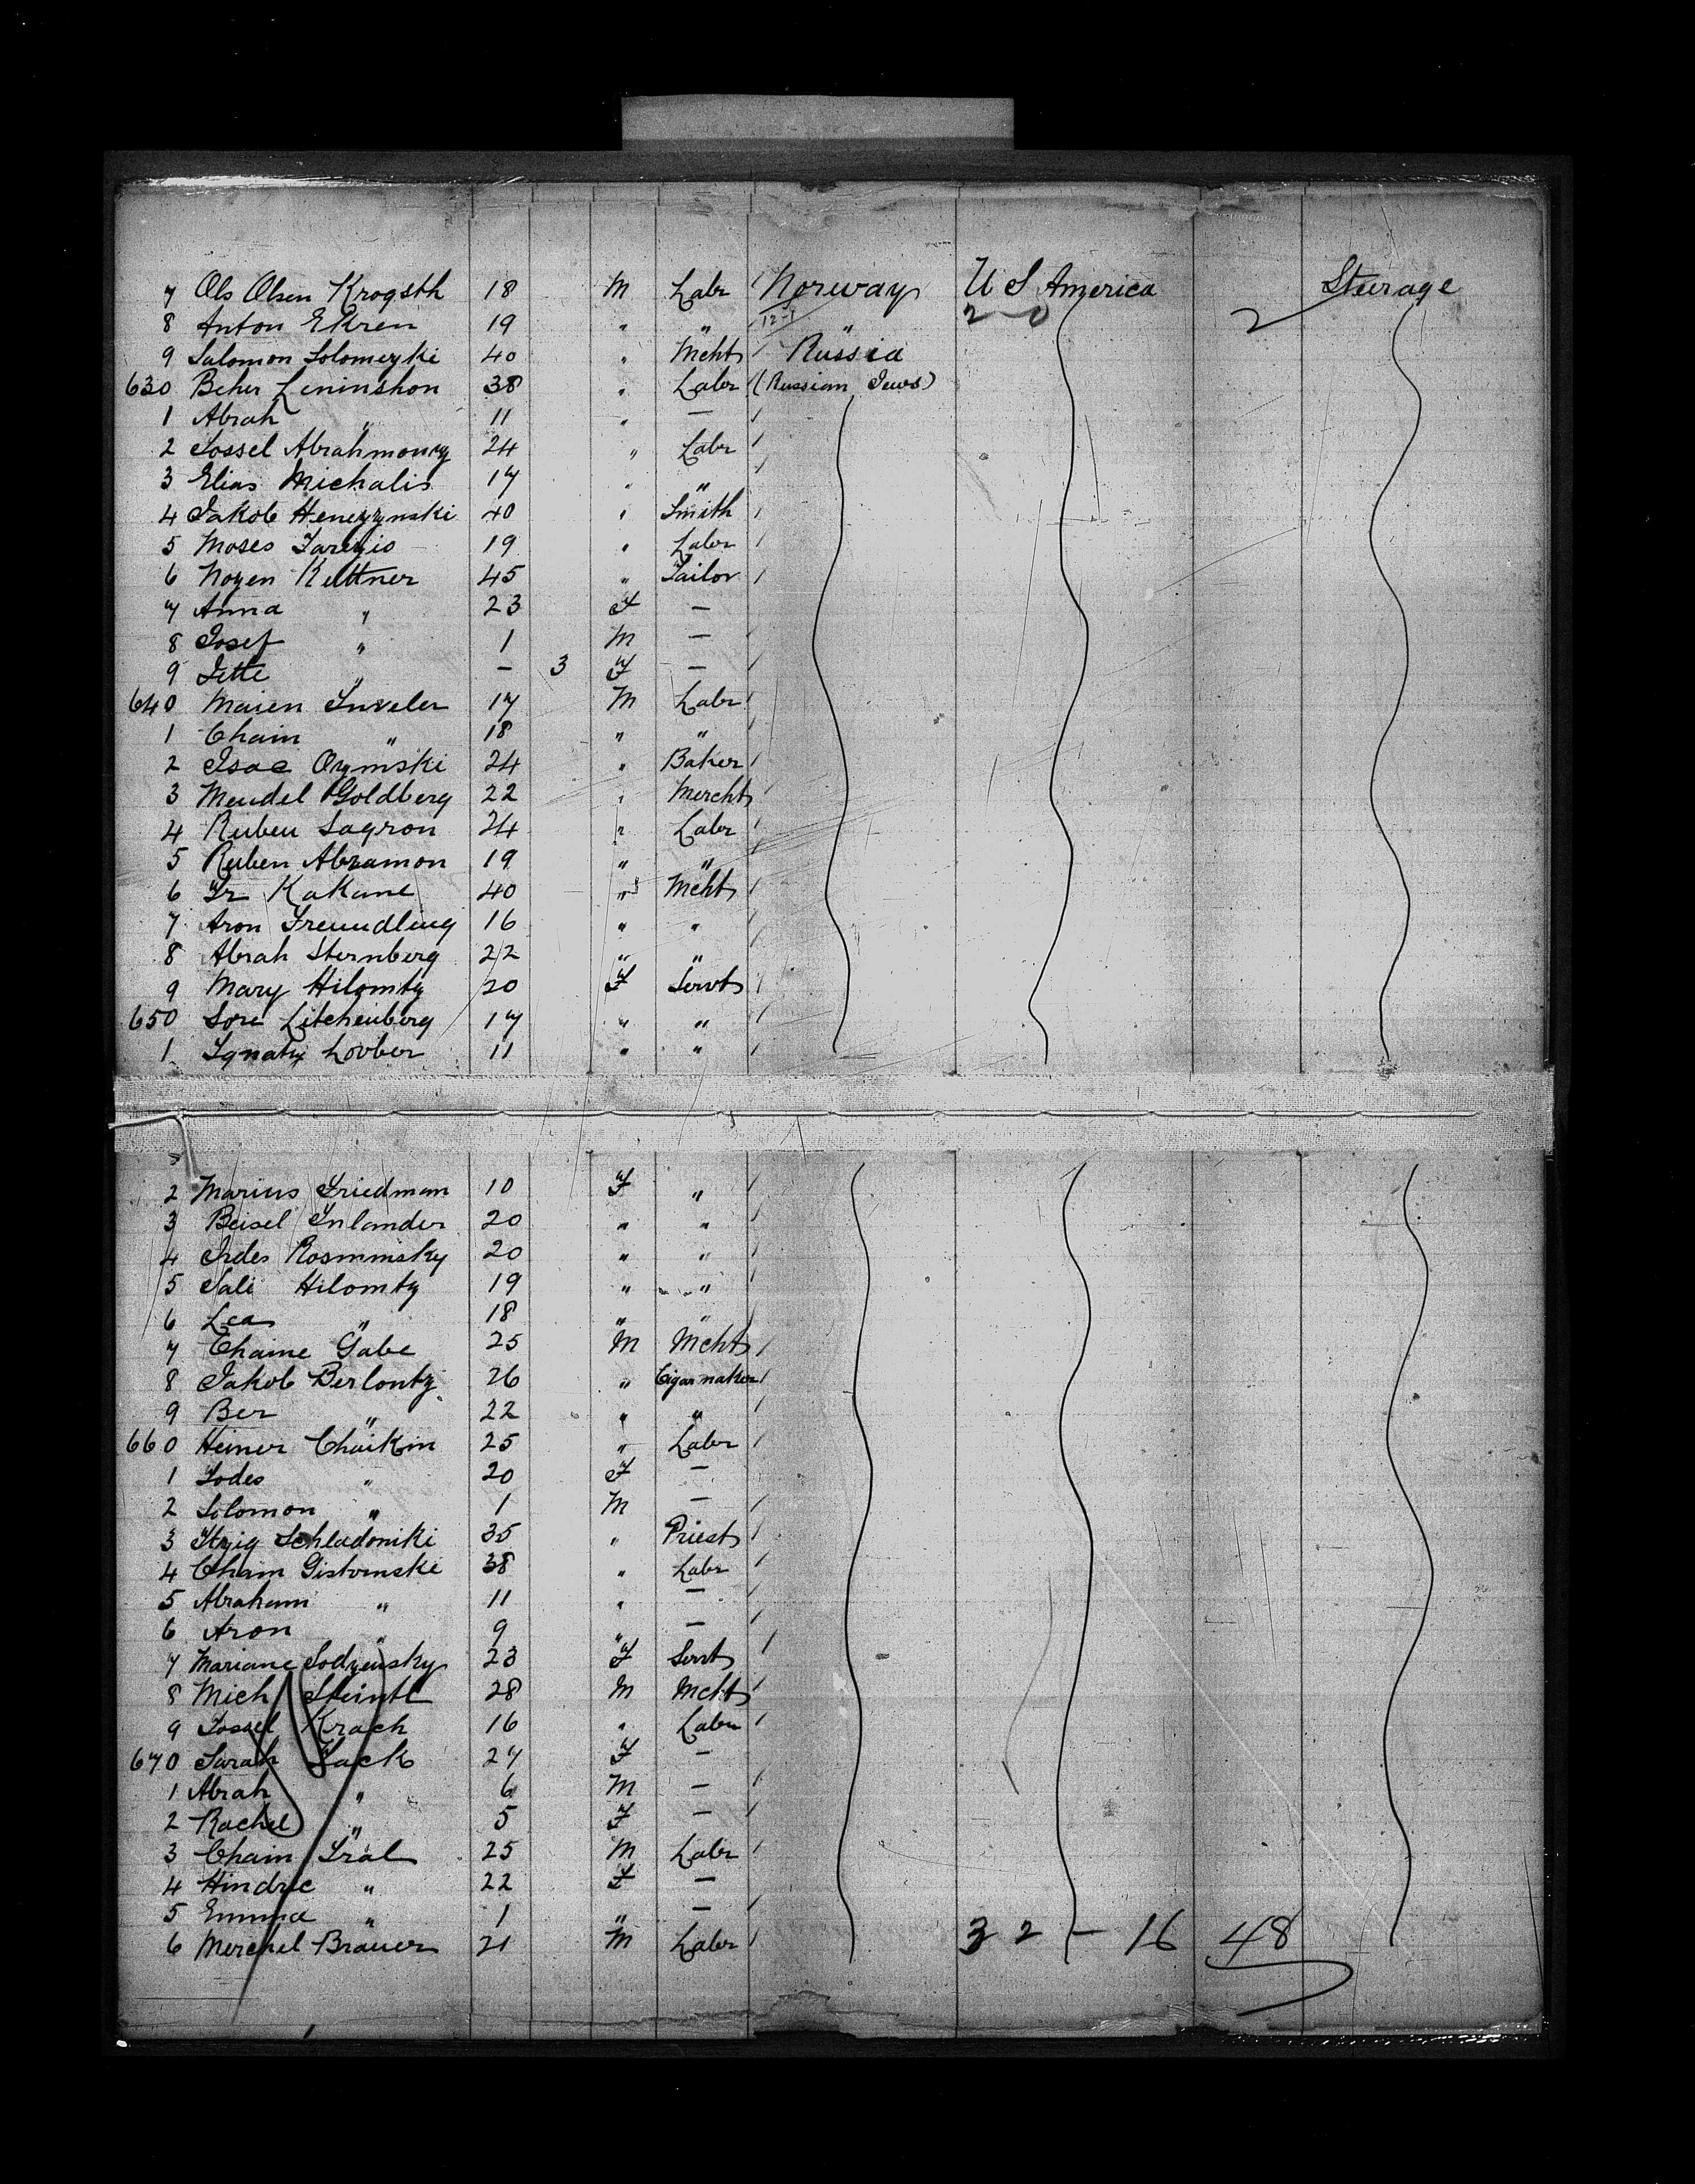 7 Ols Olsen Krogsth 18 M Labr Norway U S America Steerage
8 Anton Ekren 19 " " 12-1 " 2-0 2
9 Salomon Solomezki 40 " Mcht Russia
630 Beher Leninshon 38 " Labr (Russian Jews)
1 Abrah " 11 " —
2 Jossel Abrahmoury 24 " Labr
3 Elias Michalis 17 " "
4 Jakob 40 " Smith
5 Moses 19 " Labr
6 Nozen Kelttner 45 " Tailor
7 Anna " 23 F —
8 Josef " 1 M —
9 Jette " — 3 F —
640 Maien 17 M Labr
1 Chaim " 18 " "
2 Isac Ozmski 24 " Baker
3 Mendel Goldberg 22 " Mercht
4 Ruben Sagron 24 " Labr
5 Ruben Abramon 19 " "
6 Kakane 40 " Mcht
7 Aron Freundling 16 " "
8 Abrah Sternberg 22 " "
9 Mary Hilomtz 20 F Servt
650 Sore Litchenberg 17 " "
1 Ignatz Lovber 11 " "
2 Marius Friedman 10 F "
3 Beisel Inlander 20 " "
4 Rosminsky 20 " "
5 Sali Hilomtz 19 " "
6 Lea " 18 " "
7 Chaine Gabe 25 M Mcht
8 Jakob Berlontz 26 " Cigarmaker
9 Ber " 22 " "
660 Heiner Chaikin 25 " Labr
1 Sodes " 20 F —
2 Solomon " 1 M —
3 Itzig Schladoniki 35 " Priest
4 Chaim Gistvinski 38 " Labr
5 Abraham " 11 " —
6 Aron " 9 " —
7 Mariane Sodzensky 23 F Servt
8 Mich Steintl 28 M Mcht
9 Jossel Krach 16 " Labr
670 Sarah Sack 27 F —
1 Abrah " 6 M —
2 Rachel " 5 F —
3 Chaim Sral 25 M Labr
4 Hindric " 22 F —
5 Emma " 1 " —
6 Merchel Brauer 21 M Labr 32 - 16 48